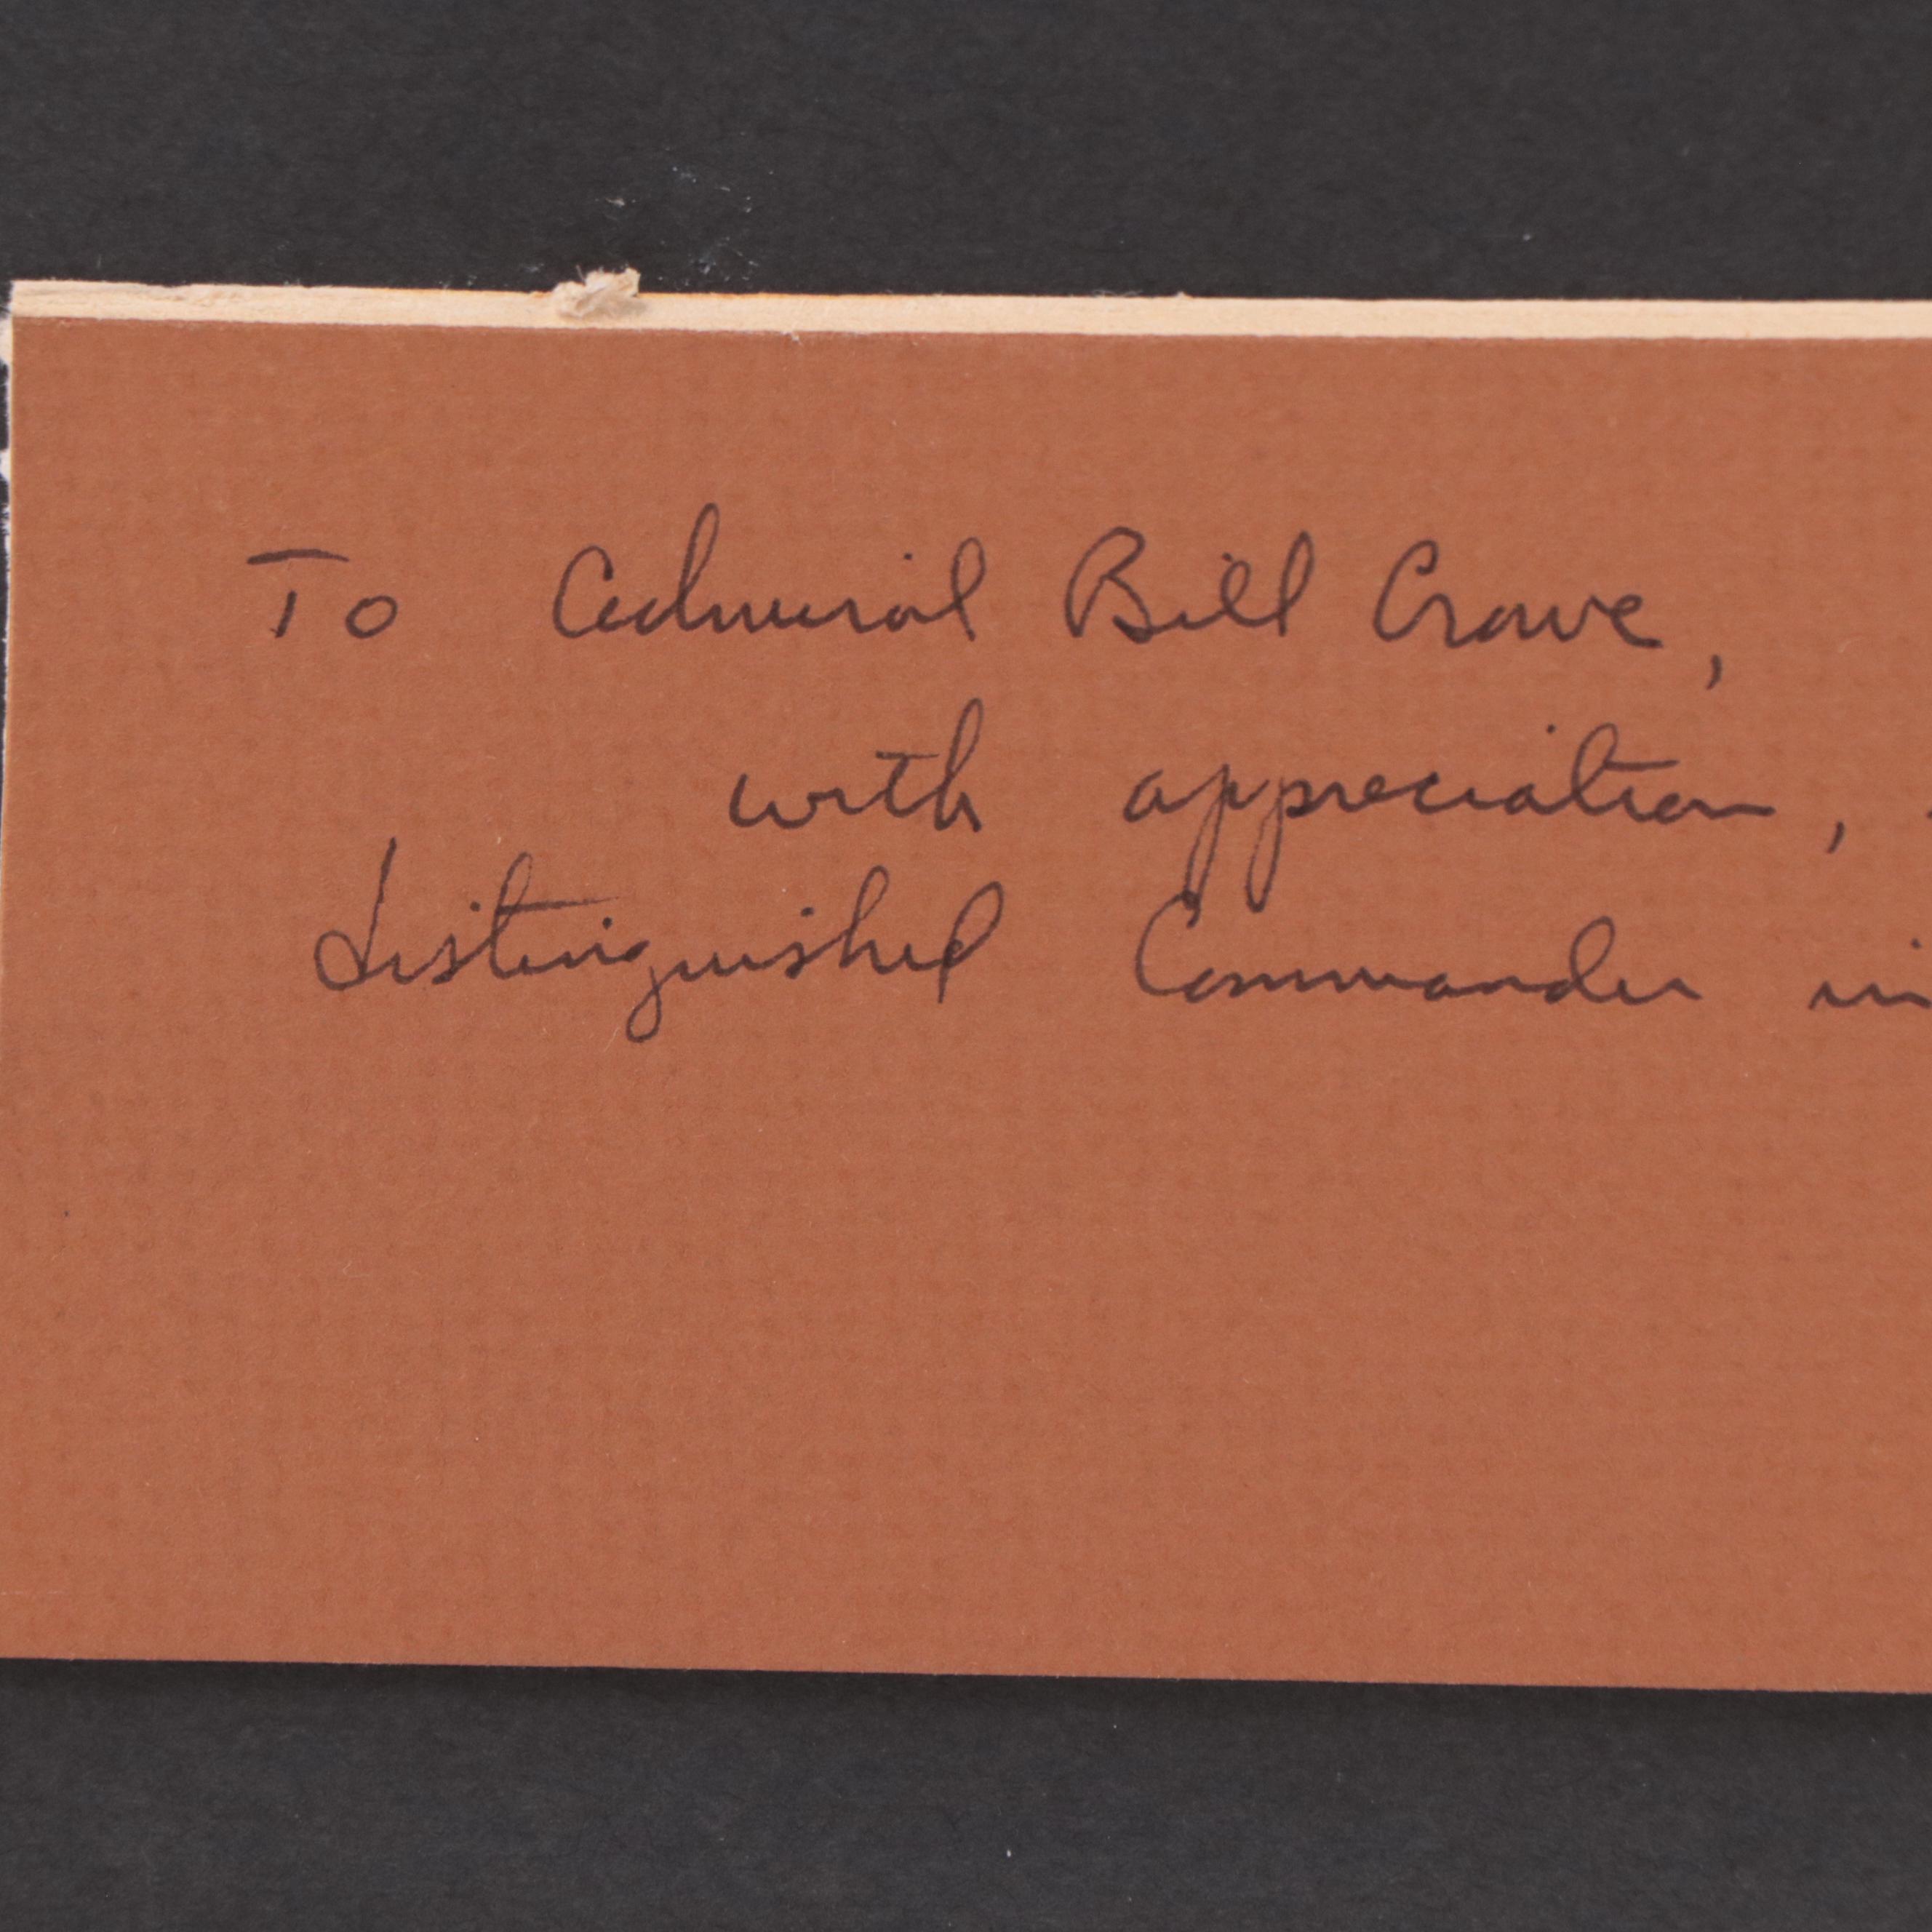 To Admiral Bill Crowe,
with appreciation,
distinguished Commander in